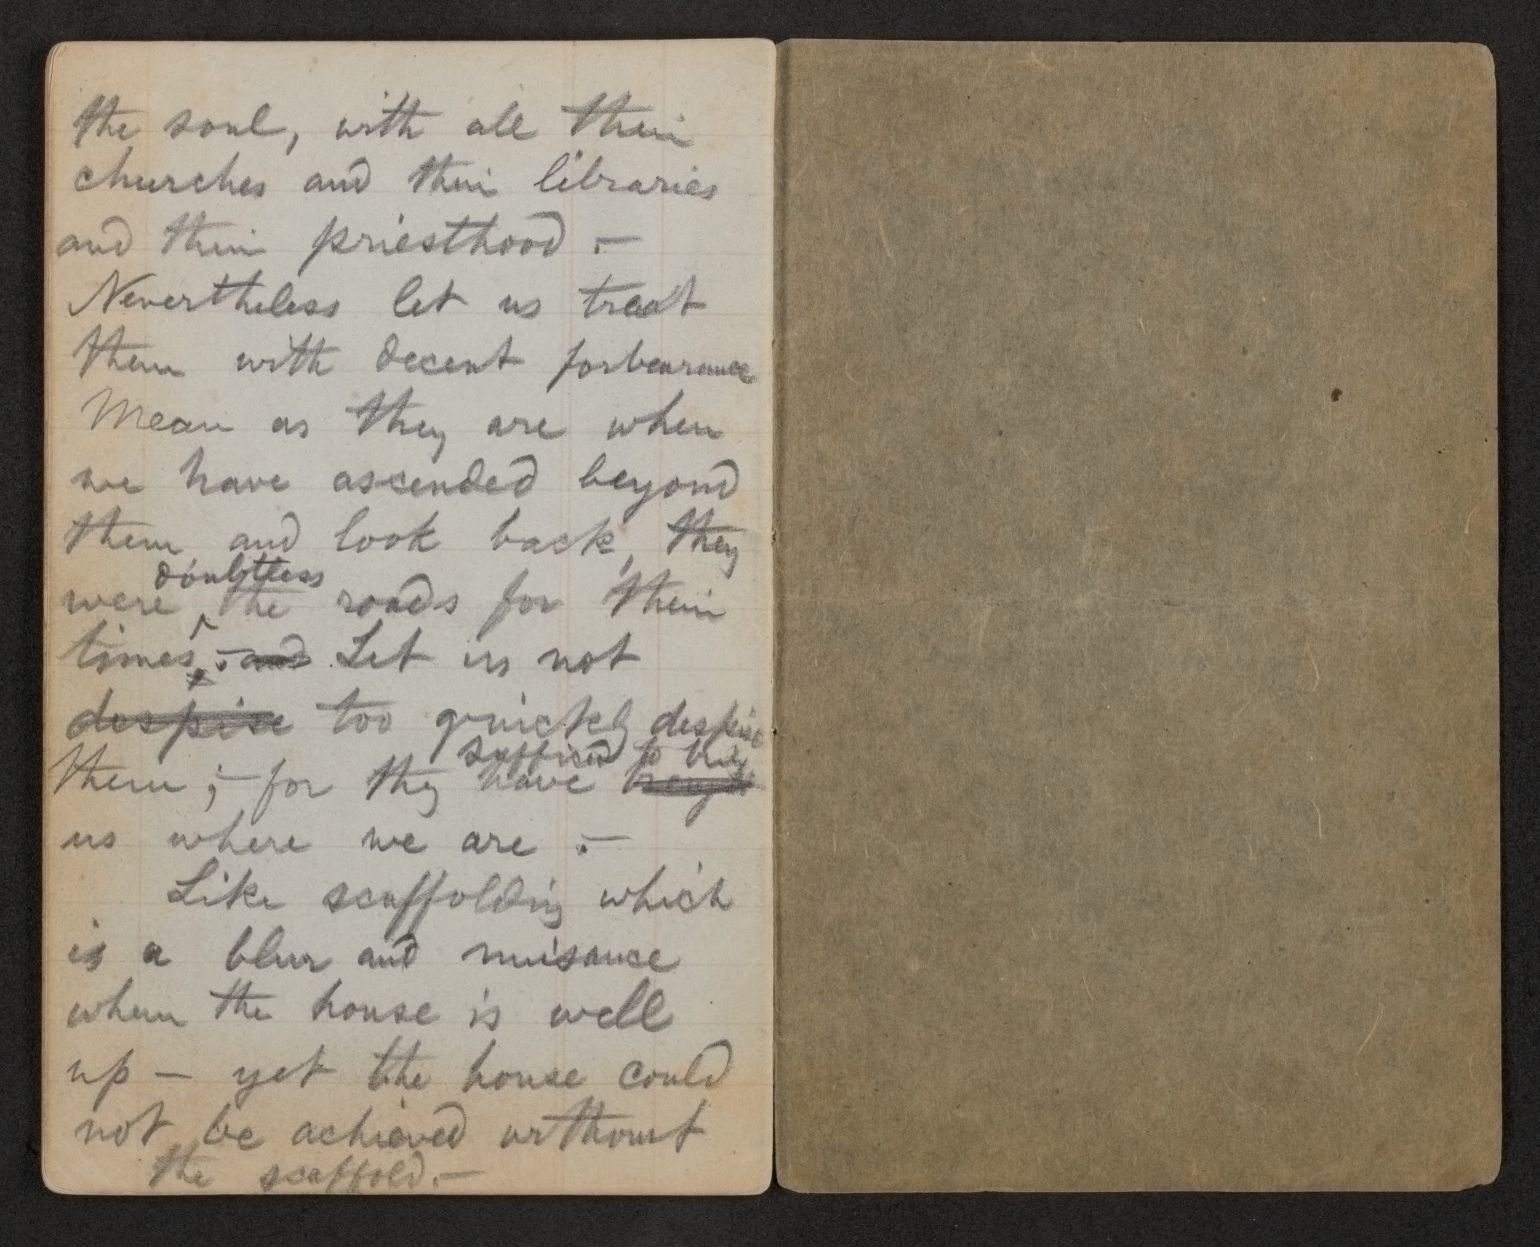 the soul, with all their
churches and their libraries
and their priesthood .—
Nevertheless let us treat
them with decent forbearance
Mean as they are when
we have ascended beyond
them and look back, they
doubtless
were ^ the roads for their
times .— and Let us not
despise too quickly despise
sufficed to bring
them ;— for they have brought
us where we are .—
Like scaffolding which
is a blur and nuisance
when the house is well
up — yet the house could
not be achieved without
the scaffold.—